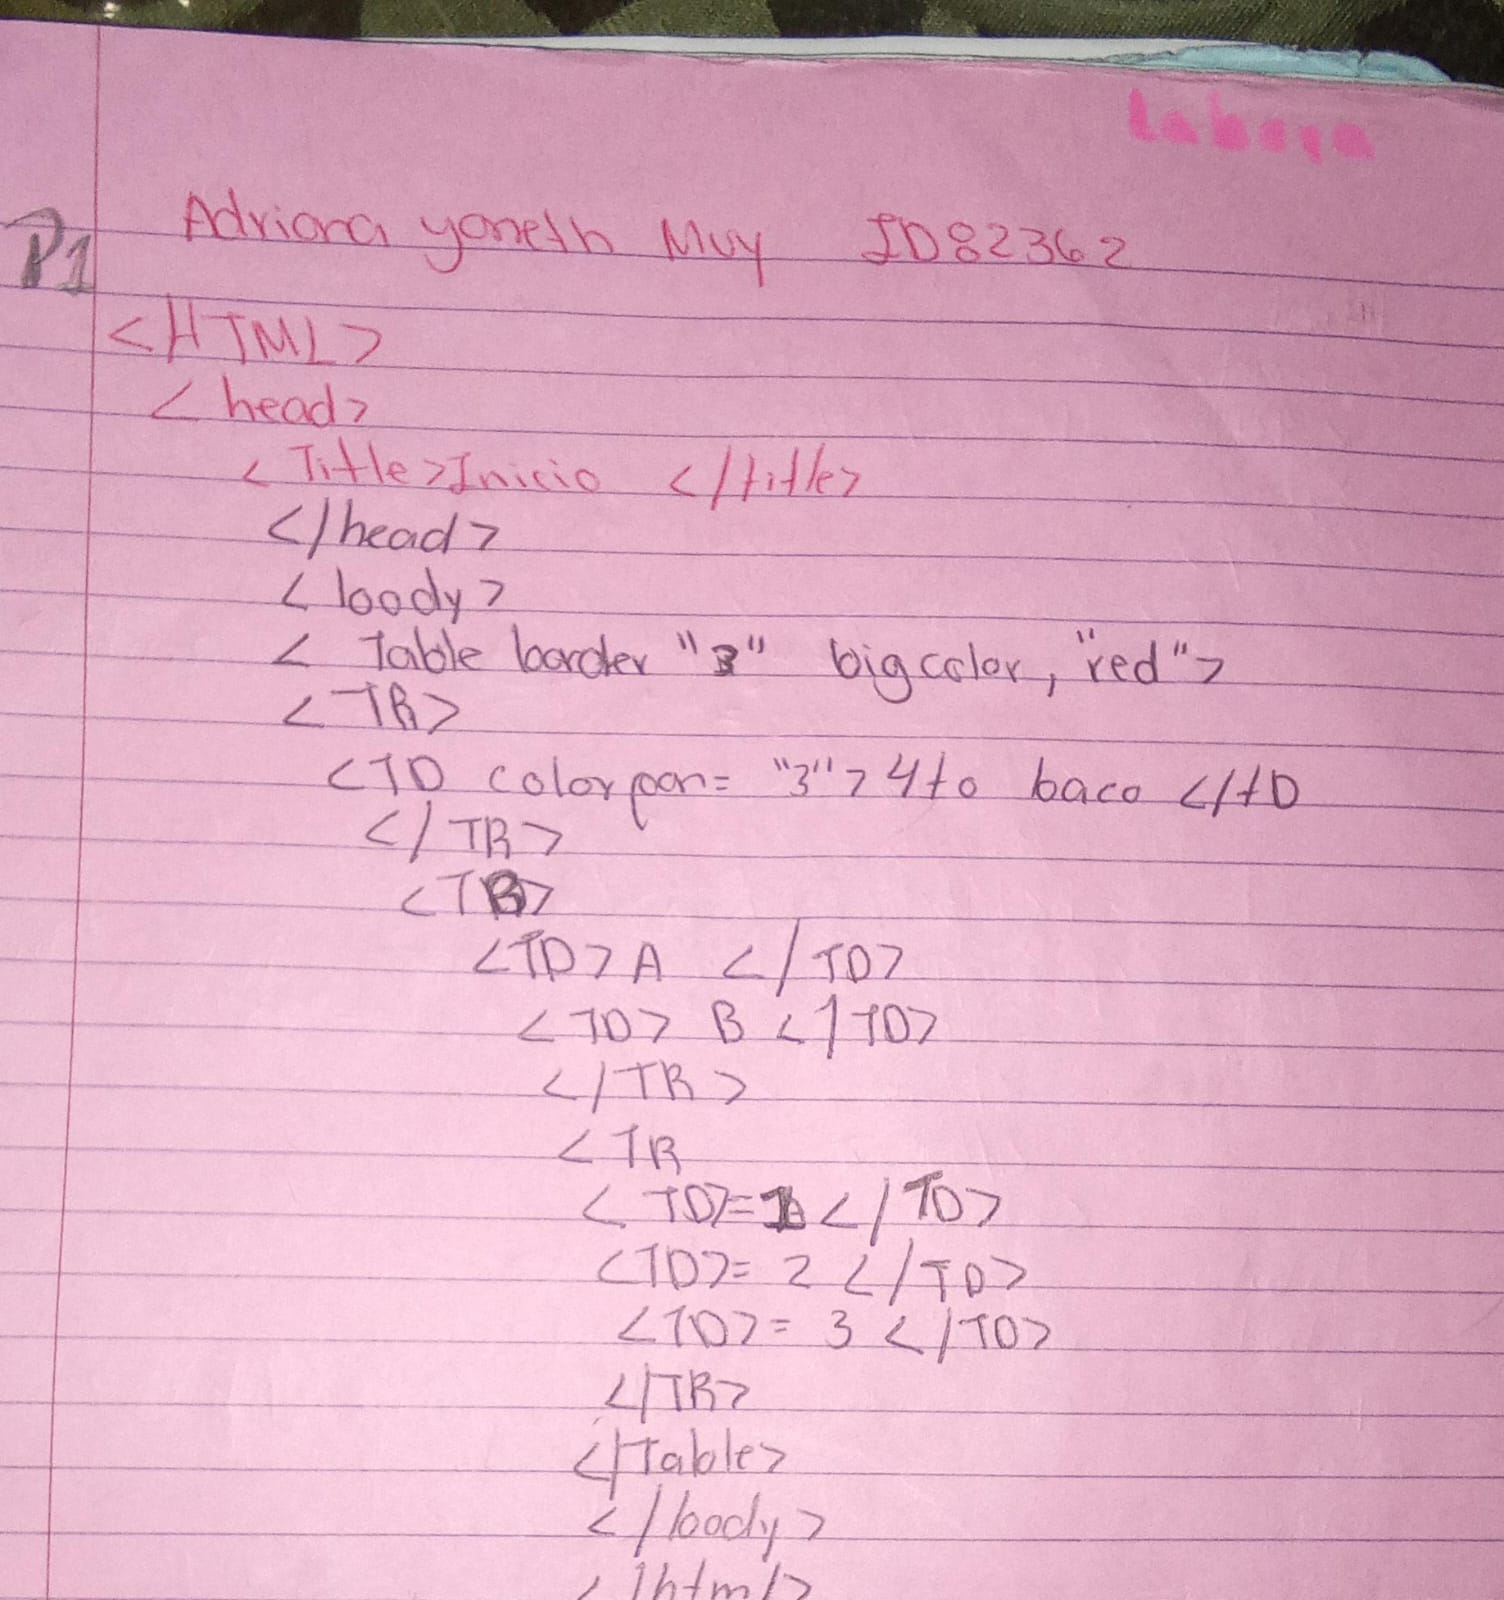 Adriana yaneth Muy ID82362
P1
<HTML>
<head>
<Title>Inicio </title>
</head>
<body>
< Table border "3" bigcolor, "red">
<TR>
<TD colorpan= "3">4to baco </tD
</TR>
<TR>
<TD>A </TD>
<TD> B </TD>
</TR>
<TR
<TD>=1</TD>
<TD>= 2 </TD>
<TD>= 3 </TD>
</TR>
</Table>
</body>
</html>